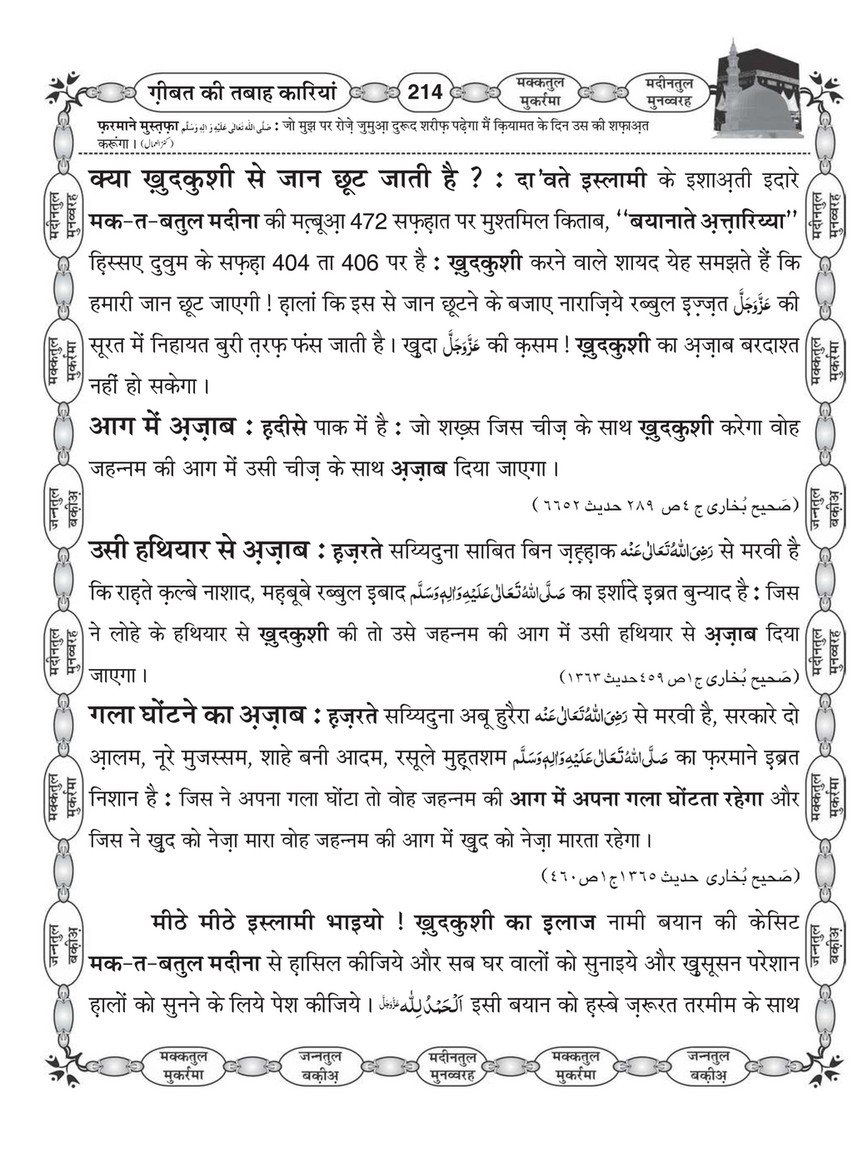 ग़ीबत की तबाह कारियां
214
मक्कतुल
मुकर्रमा
मदीनतुल
मुनव्वरह
फ़रमाने मुस्त़फ़ा صَلَّى اللهُ تَعَالٰى عَلَيْهِ وَاٰلِهٖ وَسَلَّم : जो मुझ पर रोज़े जुमुआ़ दुरूद शरीफ़ पढ़ेगा मैं क़ियामत के दिन उस की शफ़ाअ़त
करूंगा । (کنز العمال)
क्या ख़ुदकुशी से जान छूट जाती है ? : दा'वते इस्लामी के इशाअ़ती इदारे
मक-त-बतुल मदीना की मत़्बूआ़ 472 सफ़ह़ात पर मुश्तमिल किताब, ‘‘बयानाते अ़त़्त़ारिय्या’’
ह़िस्सए दुवुम के सफ़ह़ा 404 ता 406 पर है : ख़ुदकुशी करने वाले शायद येह समझते हैं कि
हमारी जान छूट जाएगी ! ह़ालां कि इस से जान छूटने के बजाए नाराज़िये रब्बुल इ़ज़्ज़त عَزَّوَجَلَّ की
सूरत में निहायत बुरी त़रह़ फंस जाती है । खुदा عَزَّوَجَلَّ की क़सम ! ख़ुदकुशी का अ़ज़ाब बरदाश्त
नहीं हो सकेगा ।
आग में अ़ज़ाब : ह़दीसे पाक में है : जो शख़्स जिस चीज़ के साथ ख़ुदकुशी करेगा वोह
जहन्नम की आग में उसी चीज़ के साथ अ़ज़ाब दिया जाएगा ।
(صَحیح بُخاری ج ٤ ص ٢٨٩ حدیث ٦٦٥٢)
उसी हथियार से अ़ज़ाब : ह़ज़रते सय्यिदुना साबित बिन ज़ह़्ह़ाक رَضِىَ اللهُ تَعَالٰى عَنْه से मरवी है
कि राह़ते क़ल्बे नाशाद, मह़बूबे रब्बुल इबाद صَلَّى اللهُ تَعَالٰى عَلَيْهِ وَاٰلِهٖ وَسَلَّم का इर्शादे इ़ब्रत बुन्याद है : जिस
ने लोहे के हथियार से ख़ुदकुशी की तो उसे जहन्नम की आग में उसी हथियार से अ़ज़ाब दिया
जाएगा । (صَحیح بُخاری ج١ ص ٤٥٩ حدیث ١٣٦٣)
गला घोंटने का अ़ज़ाब : ह़ज़रते सय्यिदुना अबू हुरैरा رَضِىَ اللهُ تَعَالٰى عَنْه से मरवी है, सरकारे दो
आ़लम, नूरे मुजस्सम, शाहे बनी आदम, रसूले मुह़्तशम صَلَّى اللهُ تَعَالٰى عَلَيْهِ وَاٰلِهٖ وَسَلَّم का फ़रमाने इ़ब्रत
निशान है : जिस ने अपना गला घोंटा तो वोह जहन्नम की आग में अपना गला घोंटता रहेगा और
जिस ने खुद को नेज़ा मारा वोह जहन्नम की आग में खुद को नेज़ा मारता रहेगा ।
(صَحیح بُخاری حدیث ١٣٦٥ ج١ ص ٤٦٠)
मीठे मीठे इस्लामी भाइयो ! ख़ुदकुशी का इलाज नामी बयान की केसिट
मक-त-बतुल मदीना से ह़ासिल कीजिये और सब घर वालों को सुनाइये और खुसूसन परेशान
ह़ालों को सुनने के लिये पेश कीजिये । اَلْحَمْدُ لِلّٰه عَزَّوَجَلَّ इसी बयान को ह़स्बे ज़रूरत तरमीम के साथ
मदीनतुल
मुनव्वरह
मक्कतुल
मुकर्रमा
जन्नतुल
बक़ीअ़
मदीनतुल
मुनव्वरह
मक्कतुल
मुकर्रमा
जन्नतुल
बक़ीअ़
मदीनतुल
मुनव्वरह
मक्कतुल
मुकर्रमा
जन्नतुल
बक़ीअ़
मदीनतुल
मुनव्वरह
मक्कतुल
मुकर्रमा
जन्नतुल
बक़ीअ़
मक्कतुल
मुकर्रमा
जन्नतुल
बक़ीअ़
मदीनतुल
मुनव्वरह
मक्कतुल
मुकर्रमा
जन्नतुल
बक़ीअ़